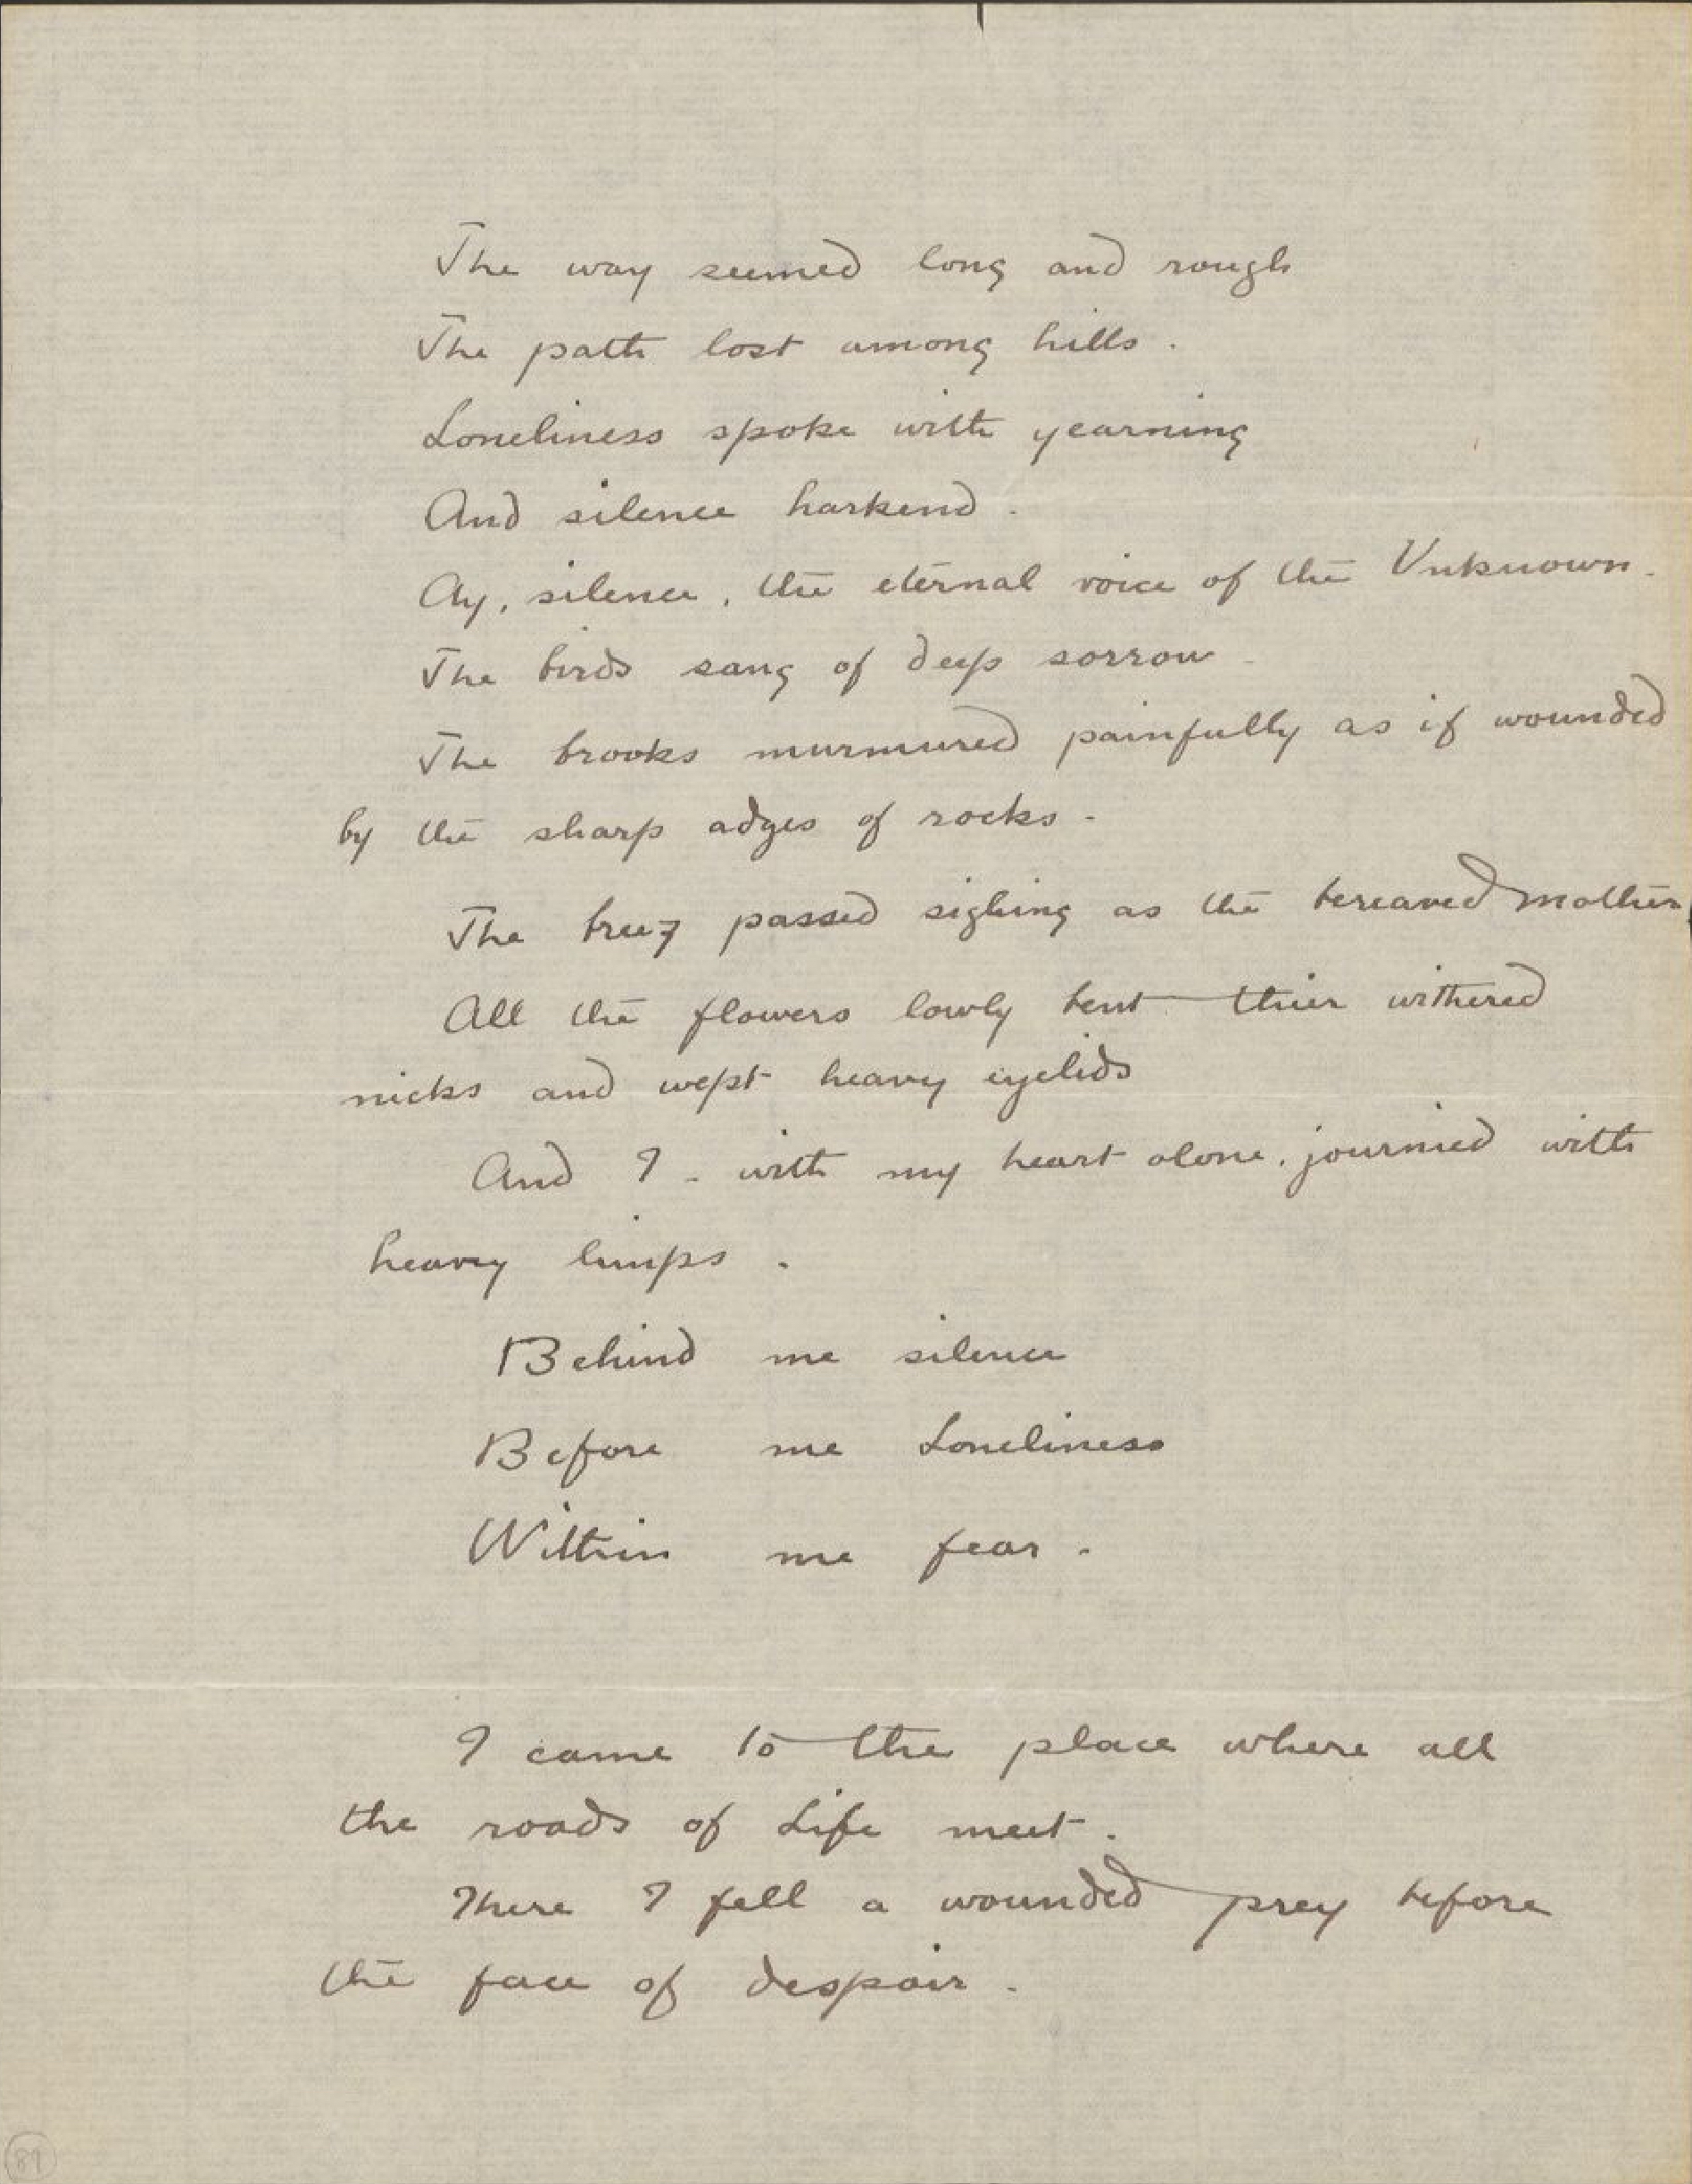 The way seemed long and rough
The path lost among hills.
Loneliness spoke with yearning
And silence harkend.
Ay, silence, the eternal voice of the Unknown.
The birds sang of deep sorrow
The brooks murmured painfully as if wounded
by the sharp adges of rocks.
The breez passed sighing as the bereaved mother
All the flowers lowly bent thier withered
nicks and wept heavy eyelids
And I - with my heart alone, journied with
heavy limps.
Behind me silence
Before me Loneliness
Within me fear.
I came to the place where all
the roads of Life meet.
There I fell a wounded prey before
the face of despair.
89